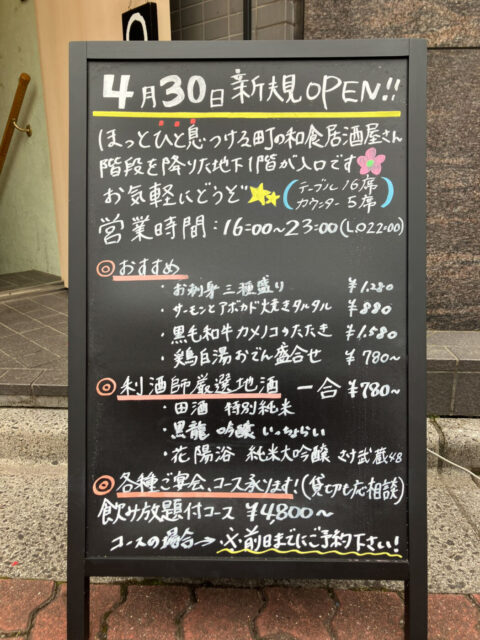 4月30日新規OPEN!!
ほっとひと息つける町の和食居酒屋さん
階段を降りた地下1階が入口です
お気軽にどうぞ
(テーブル 16席
カウンター 5席)
営業時間：16:00～23:00(L.O22:00)
◎おすすめ
・お刺身三種盛り ¥1,280
・サーモンとアボカド焼きタルタル ¥880
・黒毛和牛カメノコのたたき ¥1,580
・鶏白湯おでん盛合せ ¥780～
◎利酒師厳選地酒 一合 ¥780～
・田酒 特別純米
・黒龍 吟醸 いっちょらい
・花陽浴 純米大吟醸 さけ武蔵48
◎各種ご宴会、コース承ります!(貸切も応相談)
飲み放題付コース ¥4,800～
コースの場合→※前日までにご予約下さい!